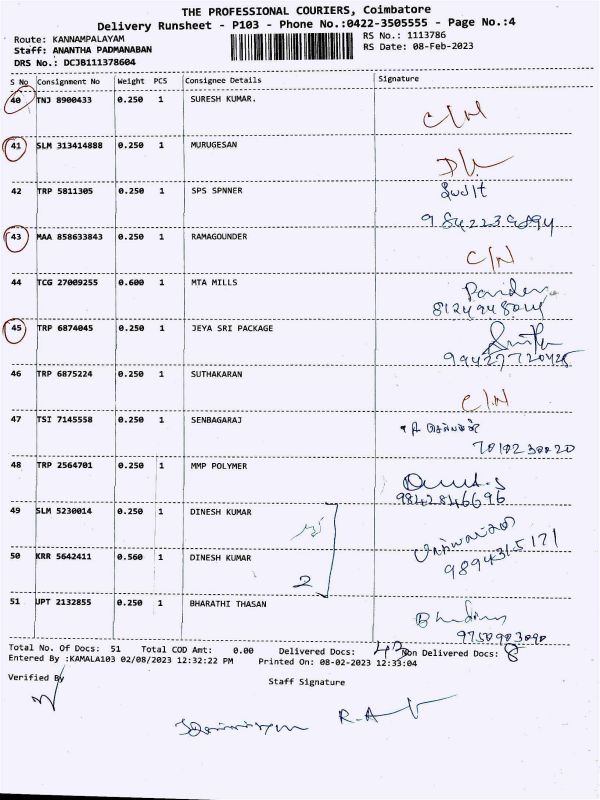 THE PROFESSIONAL COURIERS, Coimbatore
Delivery Runsheet - P103 - Phone No.:0422-3505555 - Page No.:4
Route: KANNAMPALAYAM RS No.: 1113786
Staff: ANANTHA PADMANABAN RS Date: 08-Feb-2023
DRS No.: DCJB111378604
S No Consignment No Weight PCS Consignee Details Signature
40 TNJ 8900433 0.250 1 SURESH KUMAR.
C/N
41 SLM 313414888 0.250 1 MURUGESAN
D/L
42 TRP 5811305 0.250 1 SPS SPNNER
9842239894
43 MAA 858633843 0.250 1 RAMAGOUNDER
C/N
44 TCG 27009255 0.600 1 MTA MILLS
45 TRP 6874045 0.250 1 JEYA SRI PACKAGE
46 TRP 6875224 0.250 1 SUTHAKARAN
C/N
47 TSI 7145558 0.250 1 SENBAGARAJ
48 TRP 2564701 0.250 1 MMP POLYMER
9842846696
49 SLM 5230014 0.250 1 DINESH KUMAR
50 KRR 5642411 0.560 1 DINESH KUMAR
2
51 UPT 2132855 0.250 1 BHARATHI THASAN
9750903090
Total No. Of Docs: 51 Total COD Amt: 0.00 Delivered Docs: 43 Non Delivered Docs: 8
Entered By :KAMALA103 02/08/2023 12:32:22 PM Printed On: 08-02-2023 12:33:04
Verified By
Staff Signature